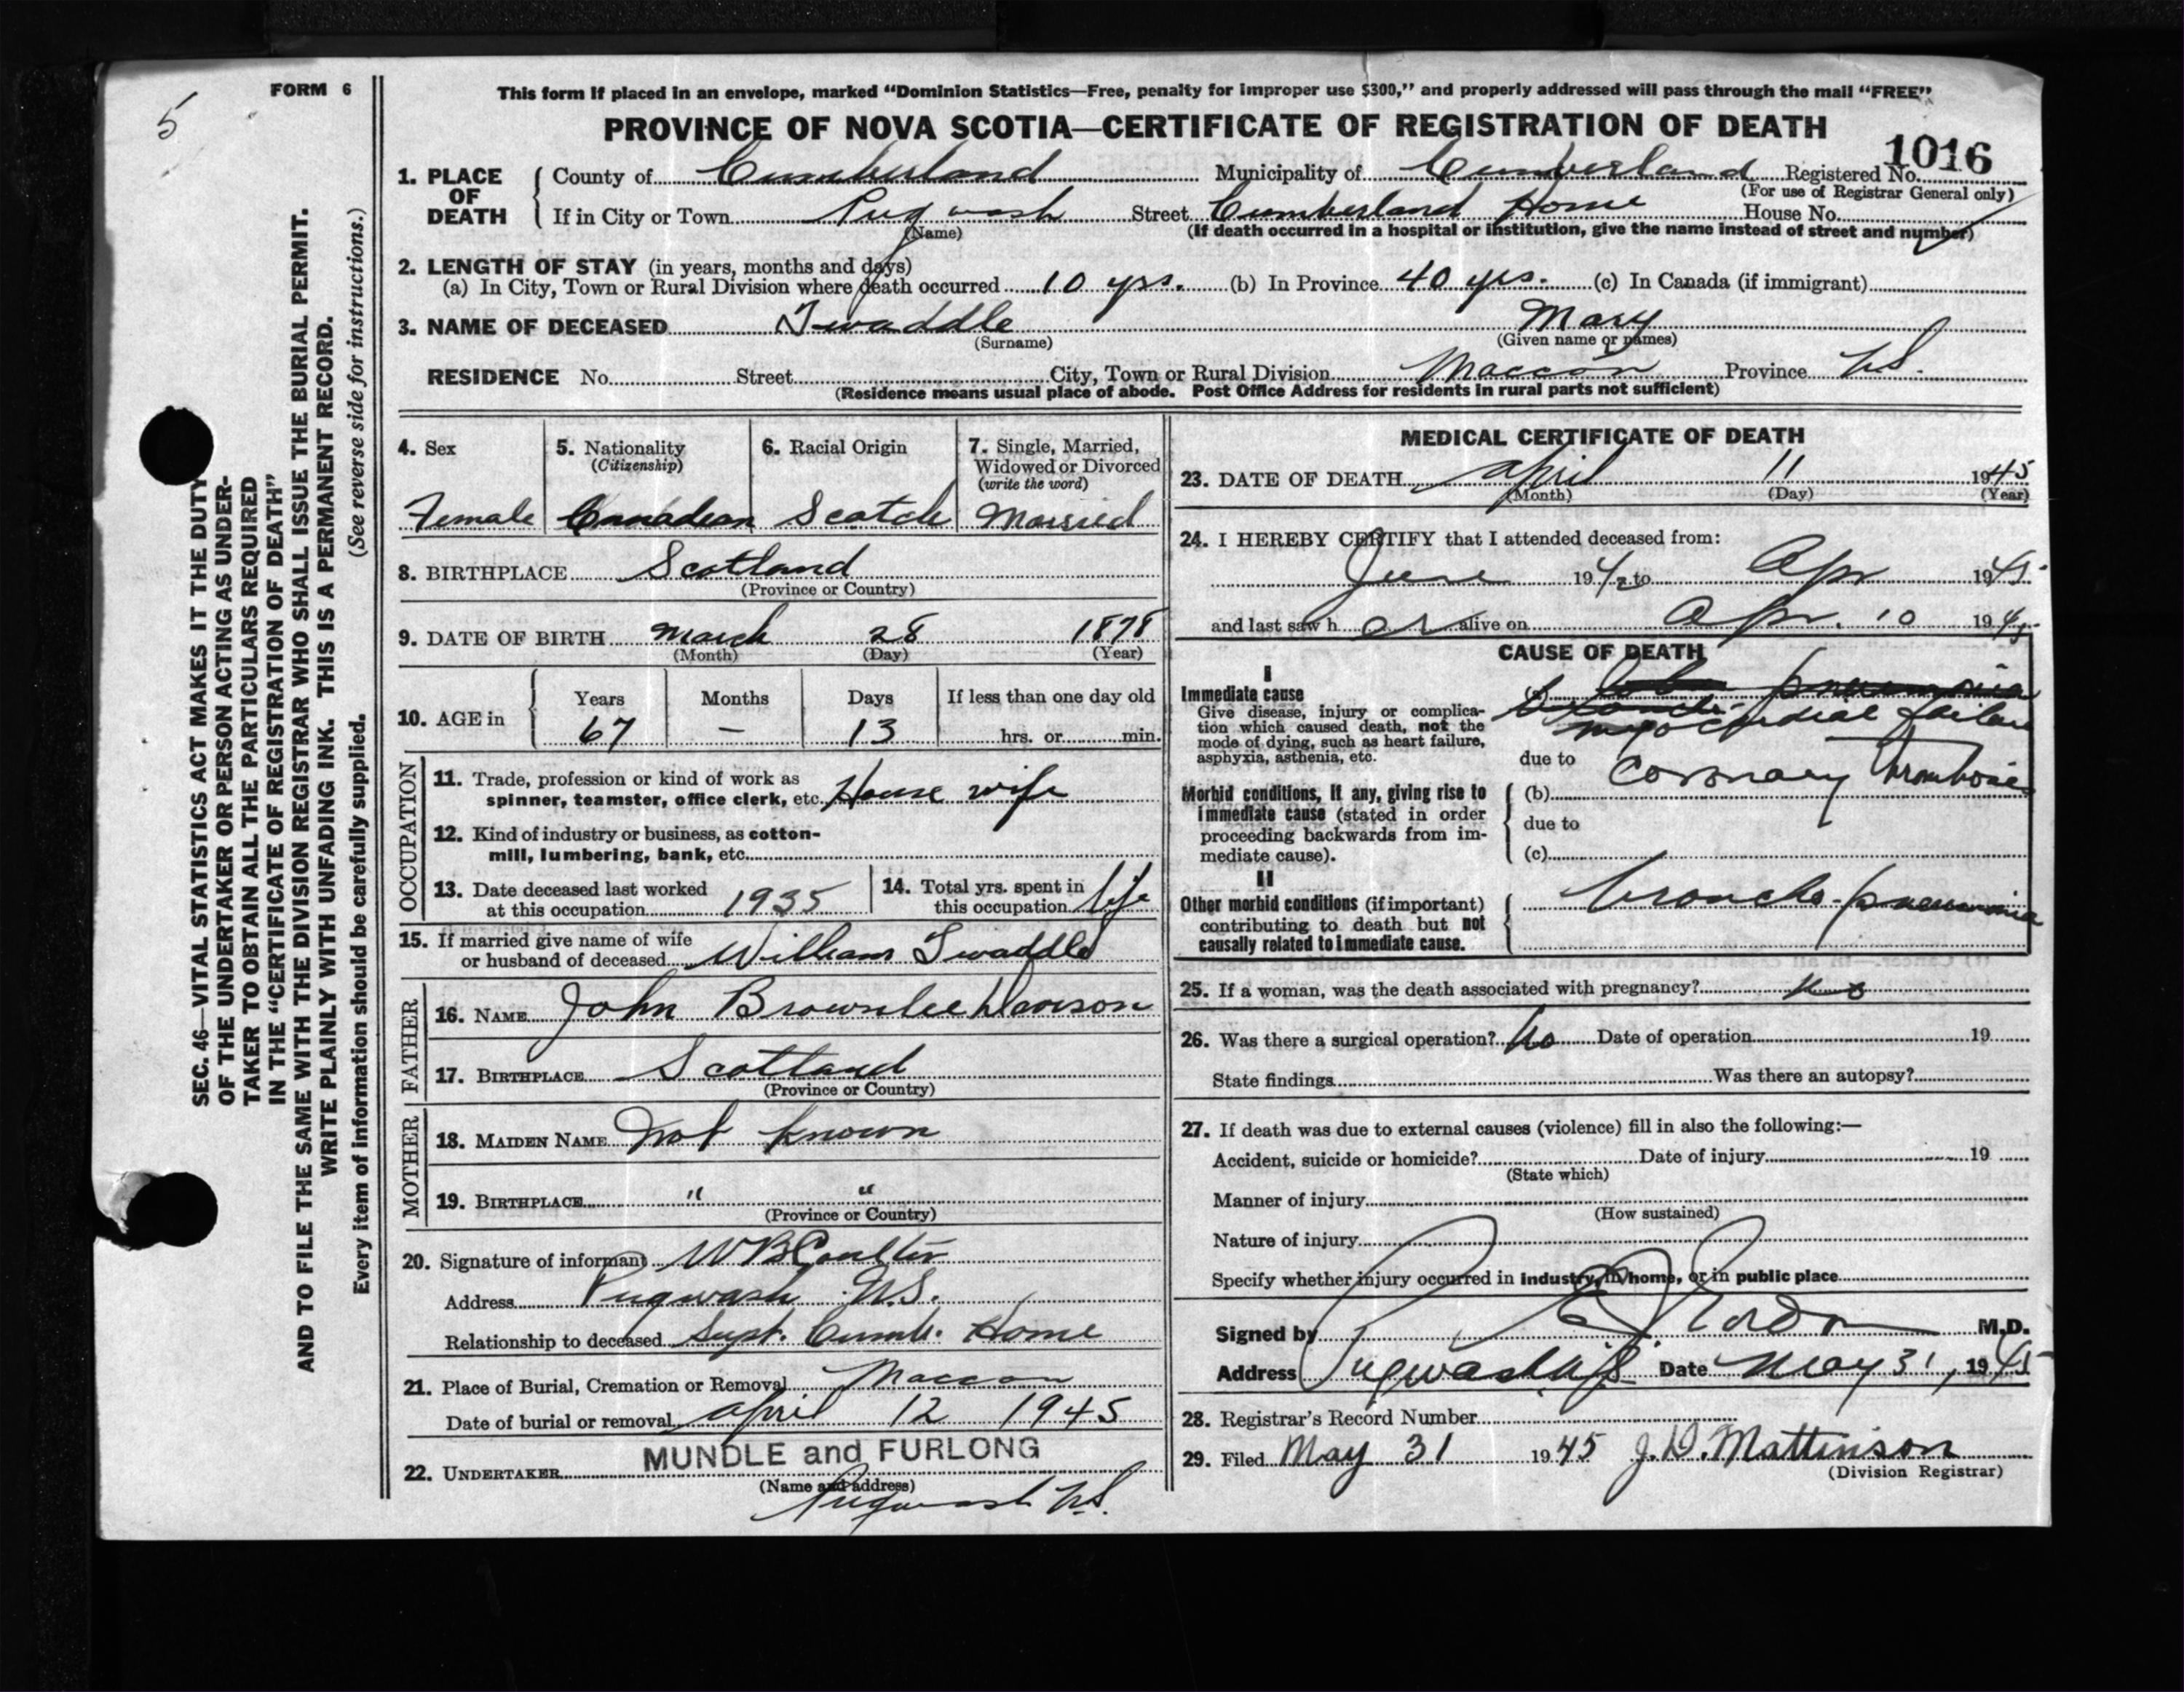 FORM 6
5
This form if placed in an envelope, marked “Dominion Statistics—Free, penalty for improper use $300,” and properly addressed will pass through the mail “FREE”
PROVINCE OF NOVA SCOTIA—CERTIFICATE OF REGISTRATION OF DEATH
1016
1. PLACE OF DEATH
County of Cumberland Municipality of Cumberland Registered No.
(For use of Registrar General only)
If in City or Town Pugwash Street Cumberland Home House No.
(Name) (If death occurred in a hospital or institution, give the name instead of street and number)
2. LENGTH OF STAY (in years, months and days)
(a) In City, Town or Rural Division where death occurred 10 yrs. (b) In Province 40 yrs. (c) In Canada (if immigrant)
3. NAME OF DECEASED Twaddle Mary
(Surname) (Given name or names)
RESIDENCE No. Street City, Town or Rural Division Maccan Province N.S.
(Residence means usual place of abode. Post Office Address for residents in rural parts not sufficient)
4. Sex 5. Nationality 6. Racial Origin 7. Single, Married,
(Citizenship) Widowed or Divorced
(write the word)
Female Canadian Scotch Married
8. BIRTHPLACE Scotland
(Province or Country)
9. DATE OF BIRTH March 28 1878
(Month) (Day) (Year)
10. AGE in Years Months Days If less than one day old
67 — 13 hrs. or min.
OCCUPATION
11. Trade, profession or kind of work as
spinner, teamster, office clerk, etc. House wife
12. Kind of industry or business, as cotton-
mill, lumbering, bank, etc.
13. Date deceased last worked
at this occupation 1935
14. Total yrs. spent in
this occupation life
15. If married give name of wife
or husband of deceased William Twaddle
FATHER
16. NAME John Brownlee Dawson
17. BIRTHPLACE Scotland
(Province or Country)
MOTHER
18. MAIDEN NAME Not known
19. BIRTHPLACE " "
(Province or Country)
20. Signature of informant W B Coulter
Address Pugwash N.S.
Relationship to deceased Supt. Cumb. Home
21. Place of Burial, Cremation or Removal Maccan
Date of burial or removal April 12 1945
22. UNDERTAKER MUNDLE and FURLONG
(Name and address)
Pugwash N.S.
MEDICAL CERTIFICATE OF DEATH
23. DATE OF DEATH April 11 1945
(Month) (Day) (Year)
24. I HEREBY CERTIFY that I attended deceased from:
June 1942 to Apr 1945
and last saw h er alive on Apr. 10 1945
CAUSE OF DEATH
I
Immediate cause
Give disease, injury or complica-
tion which caused death, not the
mode of dying, such as heart failure,
asphyxia, asthenia, etc.
(a) pneumonia
myocardial failure
due to Coronary Thrombosis
Morbid conditions, if any, giving rise to
immediate cause (stated in order
proceeding backwards from im-
mediate cause).
(b)
due to
(c)
II
Other morbid conditions (if important)
contributing to death but not
causally related to immediate cause.
broncho-pneumonia
25. If a woman, was the death associated with pregnancy? No
26. Was there a surgical operation? No Date of operation 19
State findings Was there an autopsy?
27. If death was due to external causes (violence) fill in also the following:—
Accident, suicide or homicide? Date of injury 19
(State which)
Manner of injury
(How sustained)
Nature of injury
Specify whether injury occurred in industry, in home, or in public place
Signed by M.D.
Address Pugwash N.S. Date May 31, 1945
28. Registrar's Record Number
29. Filed May 31 1945 J. D. Mattinson
(Division Registrar)
SEC. 46—VITAL STATISTICS ACT MAKES IT THE DUTY
OF THE UNDERTAKER OR PERSON ACTING AS UNDER-
TAKER TO OBTAIN ALL THE PARTICULARS REQUIRED
IN THE “CERTIFICATE OF REGISTRATION OF DEATH”
AND TO FILE THE SAME WITH THE DIVISION REGISTRAR WHO SHALL ISSUE THE BURIAL PERMIT.
WRITE PLAINLY WITH UNFADING INK. THIS IS A PERMANENT RECORD.
Every item of information should be carefully supplied. (See reverse side for instructions.)